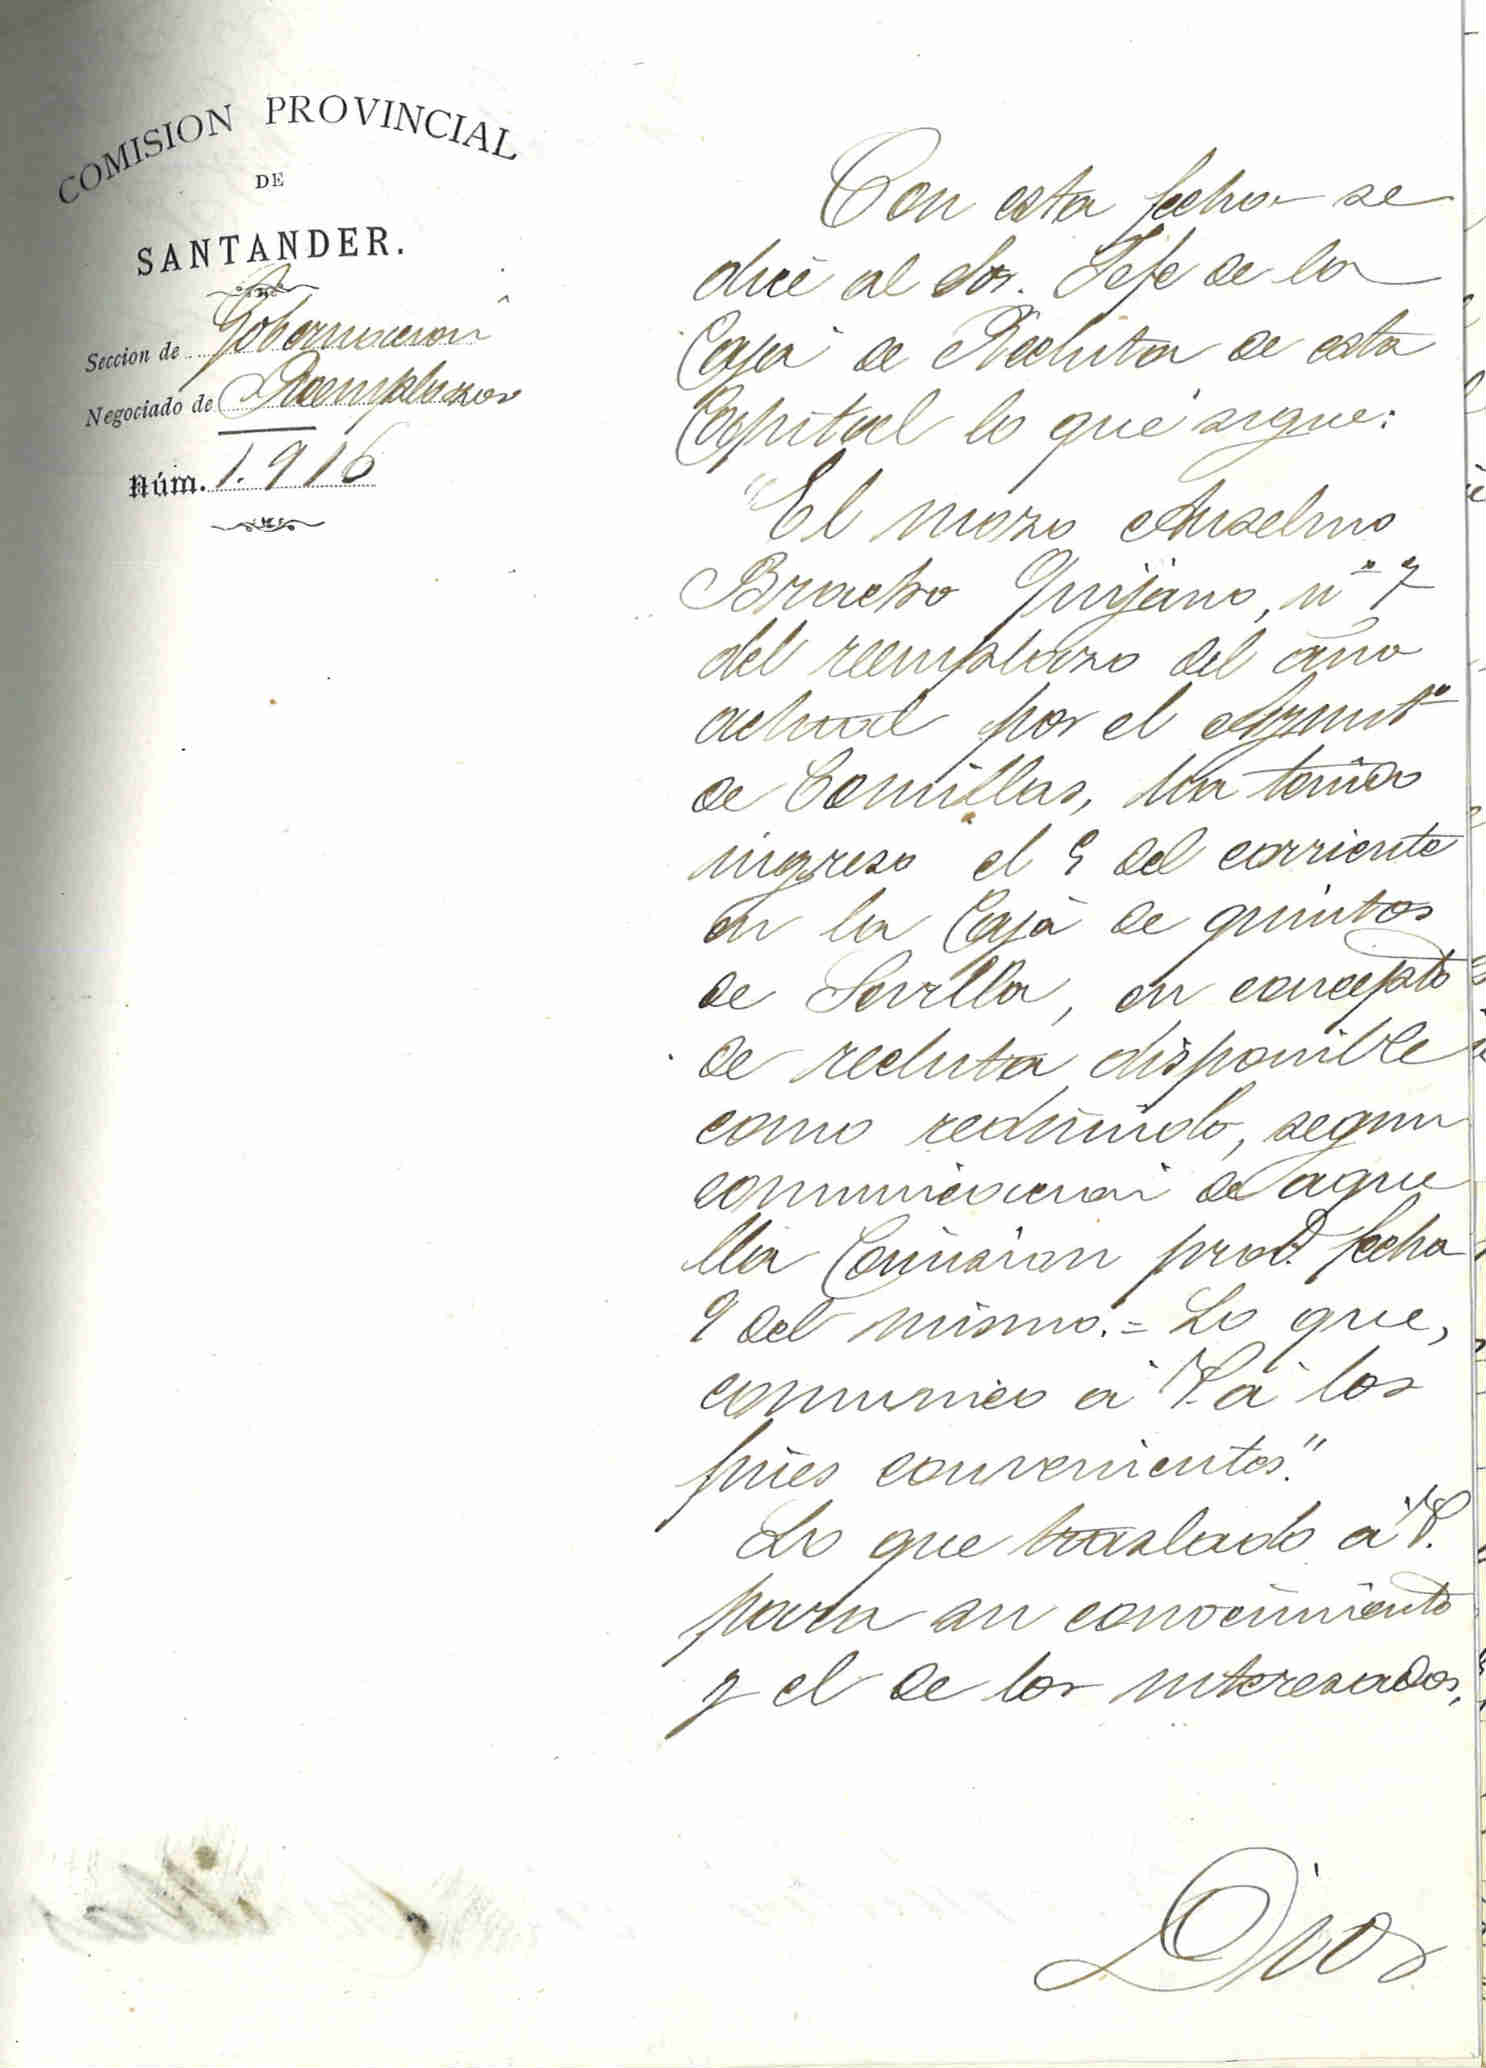 COMISION PROVINCIAL
DE
SANTANDER.
Seccion de Gobernacion
Negociado de Reemplazos
Núm. 1.916
Con esta fecha se
dice al Sor. Jefe de la
Caja de Recluta de esta
Capital lo que sigue:
"El mozo Anselmo
Bracho Quijano, nº 7
del reemplazo del año
actual por el Ayuntº
de Comillas, ha tenido
ingreso el 9 del corriente
en la Caja de quintos
de Sevilla, en concepto
de recluta disponible
como redimido, segun
comunicacion de aque
lla Comision prov.l fecha
9 del mismo.= Lo que,
comunico á V. á los
fines convenientes."
Lo que traslado á V.
para su conocimiento
y el de los interesados,
Dios